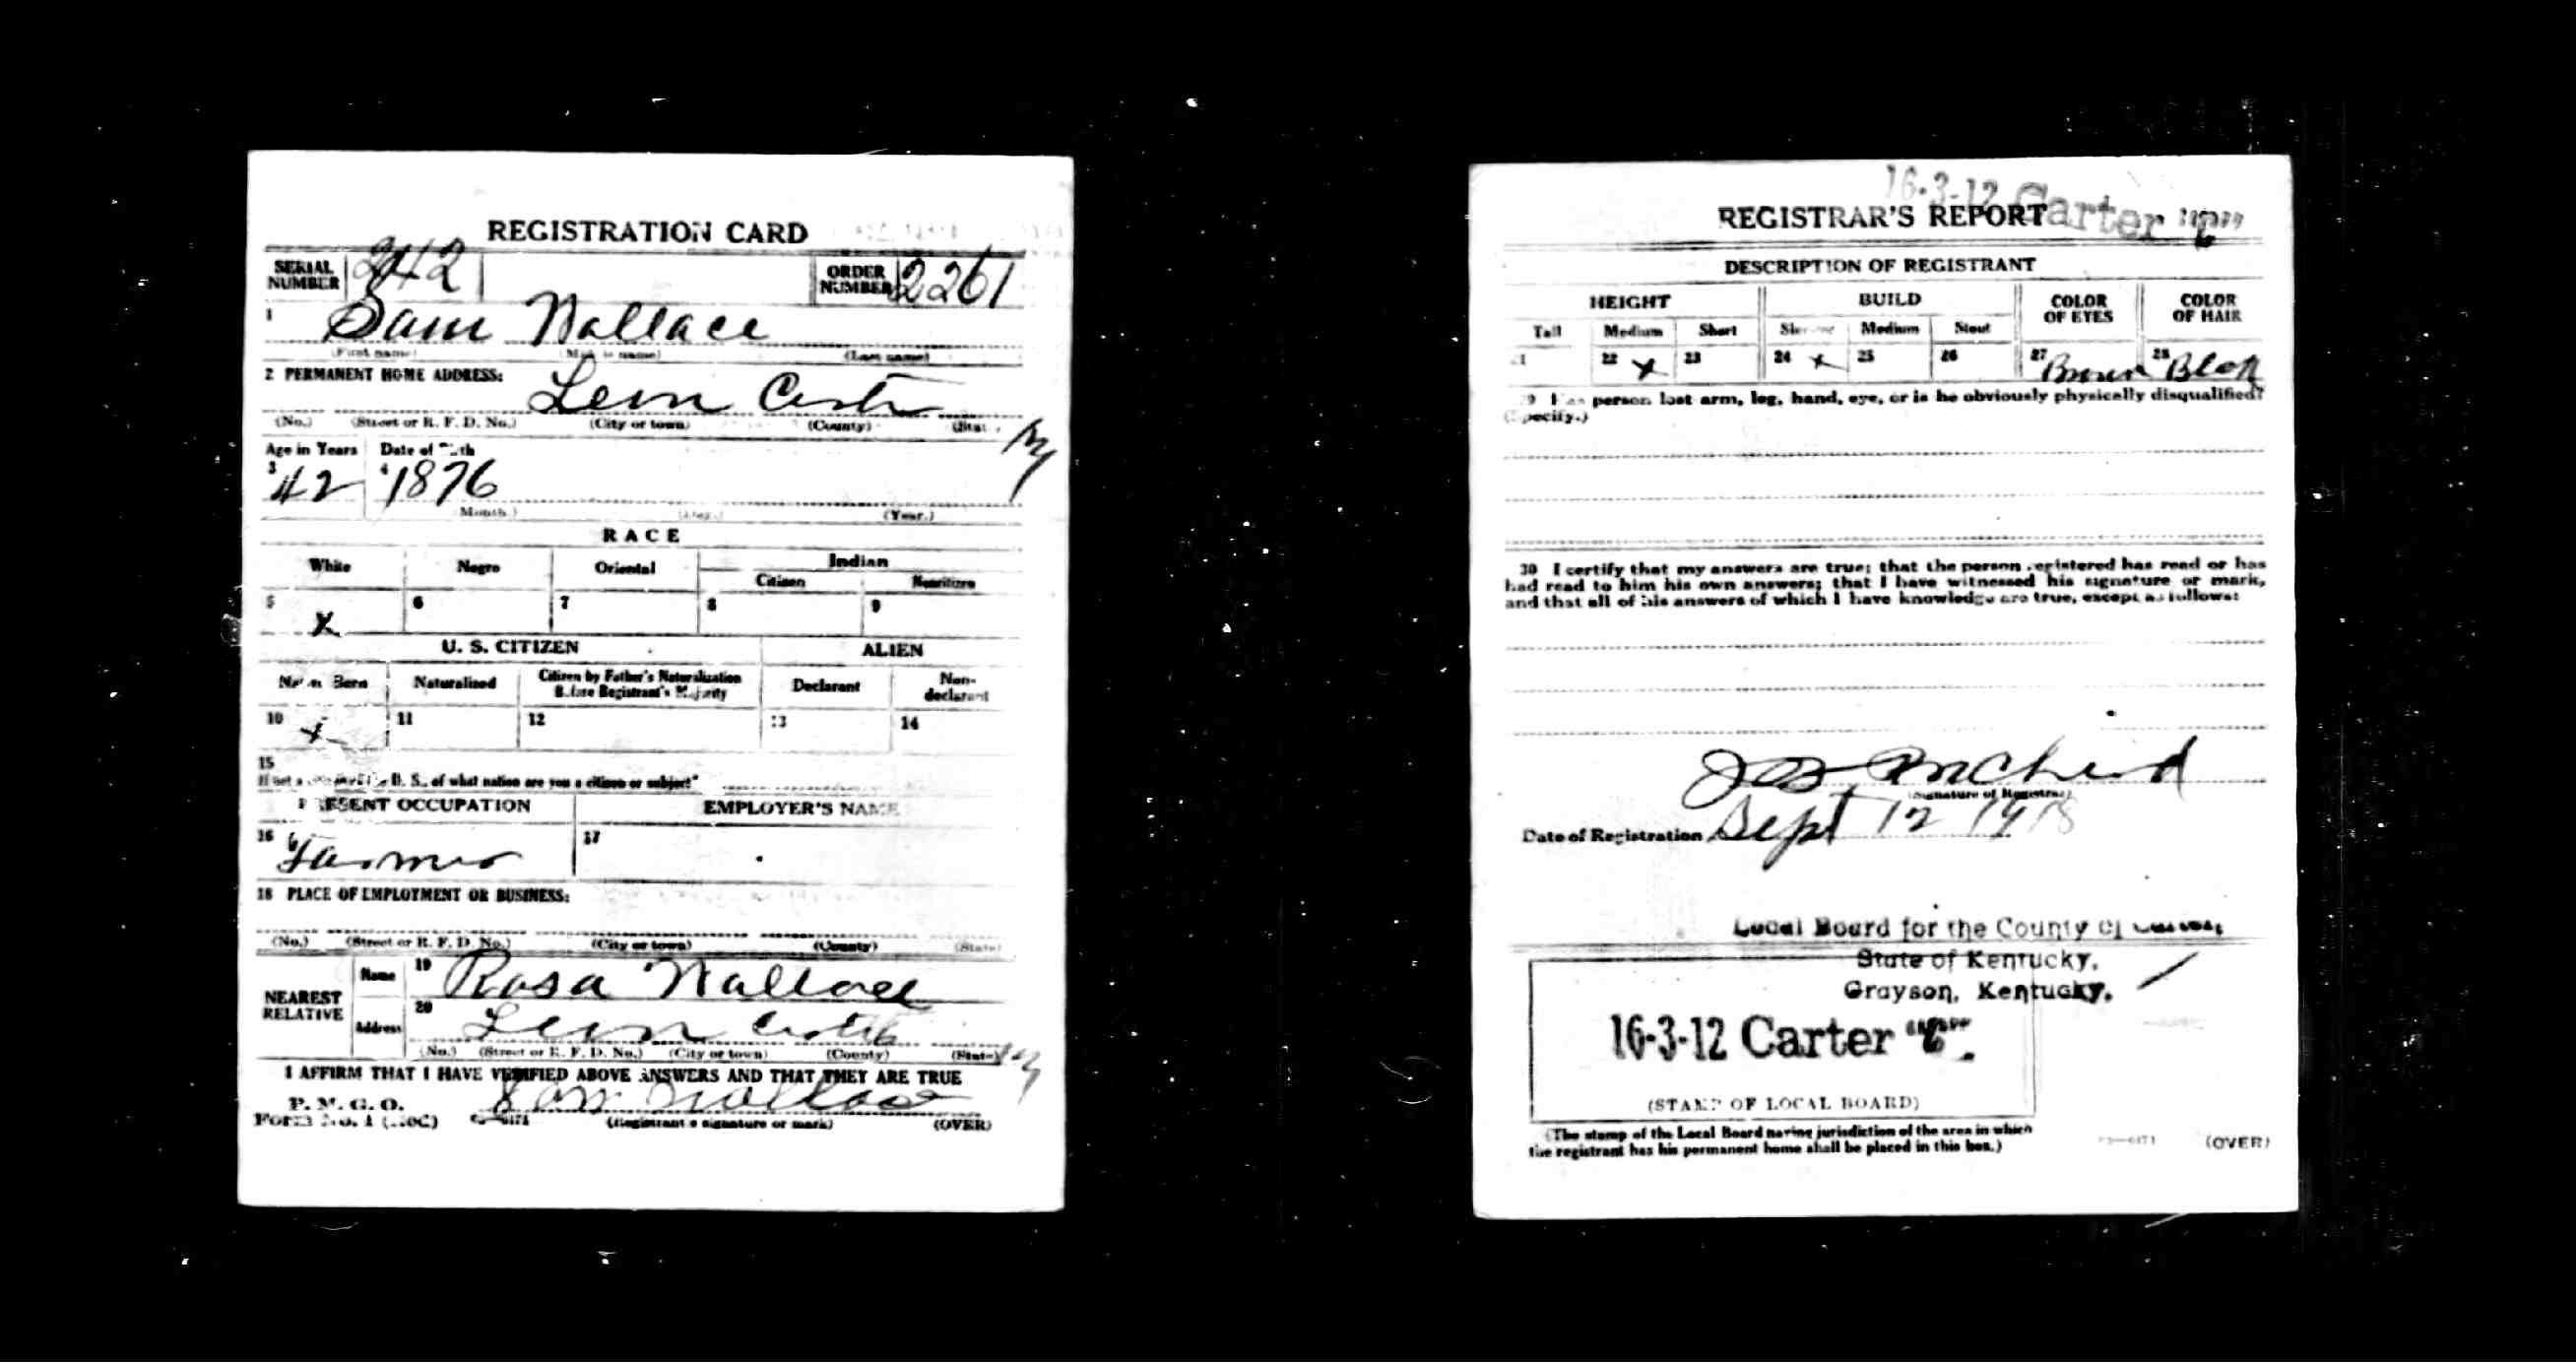 REGISTRATION CARD
SERIAL NUMBER 242 ORDER NUMBER 2261
1 Sam Wallace
(First name) (Middle name) (Last name)
2 PERMANENT HOME ADDRESS: Leon Carter Ky
(No.) (Street or R. F. D. No.) (City or town) (County) (State)
Age in Years Date of Birth
3 42 4 1876
(Month.) (Day.) (Year.)
RACE
White Negro Oriental Indian
Citizen Noncitizen
5 X 6 7 8 9
U. S. CITIZEN ALIEN
Native Born Naturalized Citizen by Father's Naturalization Before Registrant's Majority Declarant Non-declarant
10 X 11 12 13 14
15
If not a citizen of the U. S., of what nation are you a citizen or subject?
PRESENT OCCUPATION EMPLOYER'S NAME
16 Farmer 17
18 PLACE OF EMPLOYMENT OR BUSINESS:
(No.) (Street or R. F. D. No.) (City or town) (County) (State)
NEAREST RELATIVE Name 19 Rosa Wallace
Address 20 Leon Carter Ky
(No.) (Street or R. F. D. No.) (City or town) (County) (State)
I AFFIRM THAT I HAVE VERIFIED ABOVE ANSWERS AND THAT THEY ARE TRUE
P. M. G. O.
Form No. 1 (Red) Sam Wallace
(Registrant's signature or mark) (OVER)
16-3-12 Carter
REGISTRAR'S REPORT
DESCRIPTION OF REGISTRANT
HEIGHT BUILD COLOR OF EYES COLOR OF HAIR
Tall Medium Short Slender Medium Stout
21 22 X 23 24 X 25 26 27 Brown 28 Black
29 Has person lost arm, leg, hand, eye, or is he obviously physically disqualified?
(Specify.)
30 I certify that my answers are true; that the person registered has read or has
had read to him his own answers; that I have witnessed his signature or mark,
and that all of his answers of which I have knowledge are true, except as follows:
(Signature of Registrar)
Date of Registration Sept 12 1918
Local Board for the County of Carter,
State of Kentucky,
Grayson, Kentucky.
16-3-12 Carter
(STAMP OF LOCAL BOARD)
(The stamp of the Local Board having jurisdiction of the area in which
the registrant has his permanent home shall be placed in this box.)
(OVER)